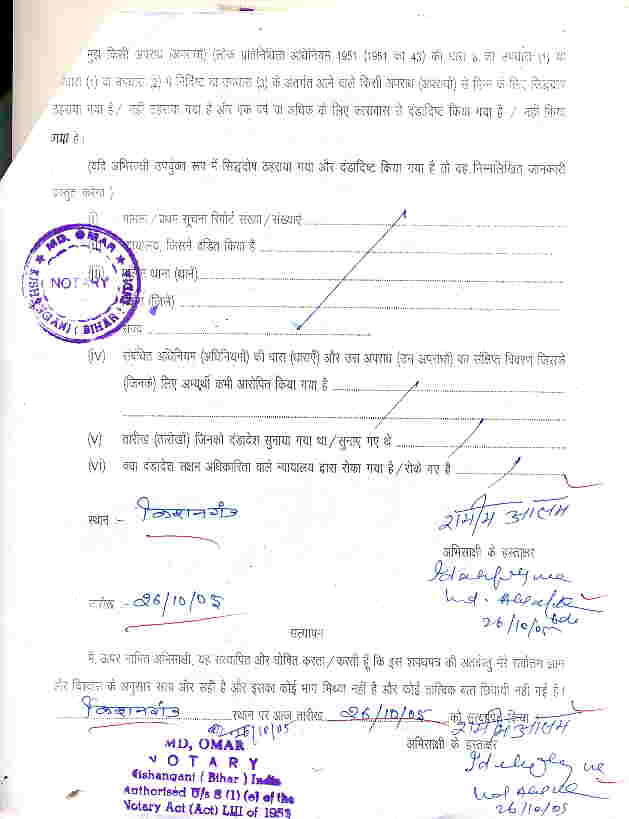 मुझे किसी अपराध (अपराधों) (लोक प्रतिनिधित्व अधिनियम 1951 (1951 का 43) की धारा 8 की उपधारा (1) या
उपधारा (1) या उपधारा (2) में निर्दिष्ट या उपधारा (3) के अंतर्गत आने वाले किसी अपराध (अपराधों) से भिन्न के लिए सिद्धदोष
ठहराया गया है / नहीं ठहराया गया है और एक वर्ष या अधिक के लिए कारावास से दंडादिष्ट किया गया है / नहीं किया
गया है।
(यदि अभिसाक्षी उपर्युक्त रूप में सिद्धदोष ठहराया गया और दंडादिष्ट किया गया है तो वह निम्नलिखित जानकारी
प्रस्तुत करेगा)
(i) मामला / प्रथम सूचना रिपोर्ट संख्या / संख्याएं
(ii) न्यायालय, जिसने दंडित किया है
(iii) पुलिस थाना (थाने)
जिला (जिले)
राज्य
MD. OMAR
NOTARY
KISHANGANJ (BIHAR) INDIA
(iv) संबंधित अधिनियम (अधिनियमों) की धारा (धाराएँ) और उस अपराध (उन अपराधों) का संक्षिप्त विवरण जिसके
(जिनके) लिए अभ्यर्थी कभी आरोपित किया गया है
(v) तारीख (तारीखों) जिनको दंडादेश सुनाया गया था / सुनाए गए थे
(vi) क्या दंडादेश सक्षम अधिकारिता वाले न्यायालय द्वारा रोका गया है / रोके गए है
स्थान :- किशनगंज
शमीम आलम
अभिसाक्षी के हस्ताक्षर
तारीख :- 26/10/05
26/10/05
सत्यापन
मैं, ऊपर नामित अभिसाक्षी, यह सत्यापित और घोषित करता / करती हूँ कि इस शपथपत्र की अंतर्वस्तु मेरे सर्वोत्तम ज्ञान
और विश्वास के अनुसार सत्य और सही है और इसका कोई भाग मिथ्या नहीं है और कोई तात्विक बात छिपायी नहीं गई है।
किशनगंज स्थान पर आज तारीख 26/10/05 को सत्यापित किया
शमीम आलम
26/10/05
अभिसाक्षी के हस्ताक्षर
MD, OMAR
NOTARY
Kishanganj ( Bihar ) India
Authorised U/s 8 (1) (e) of the
Notary Act (Act) LIII of 1953
26/10/05